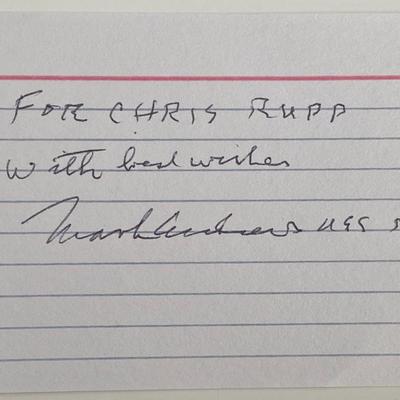 FOR CHRIS RUPP
With best wishes
Mark Andrews USS